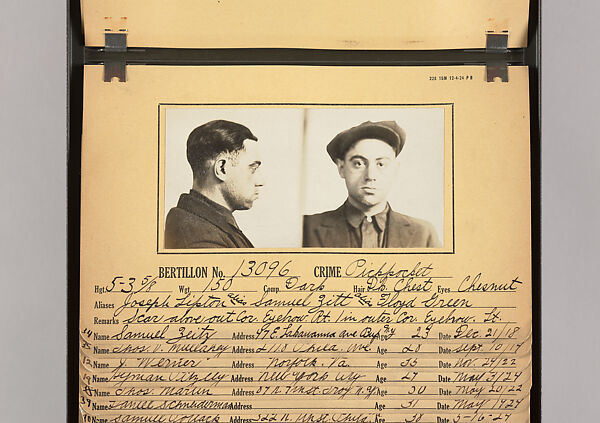 228 15M 12-4-24 P B
BERTILLON No. 13096 CRIME Pickpocket
Hgt. 5-3 5/8 Wgt. 150 Comp. Dark Hair Dk. Chest Eyes Chesnut
Aliases Joseph Lipton Samuel Zitt Floyd Green
Remarks Scar above out Cor. Eyebrow Rt. 1 in outer Cor. Eyebrow. Lt.
Name Samuel Zeitz Address 47 E. Lakawanna ave Age 23 Date Dec. 21/18
Name Thos. V. Mullaney Address 2110 Phila. Ave. Age 20 Date Sept. 10/19
Name J. Werner Address Norfolk, Va. Age 25 Date Nov. 24/22
Name Hyman Address New York City Age 27 Date May 3/24
Name Thos. Martin Address Troy N.Y. Age 30 Date May 20/22
Name Daniel Schneiderman Address Age 31 Date May 19 24
Name Samuel Address 522 N. Phila. Age 30 Date 5-16-24